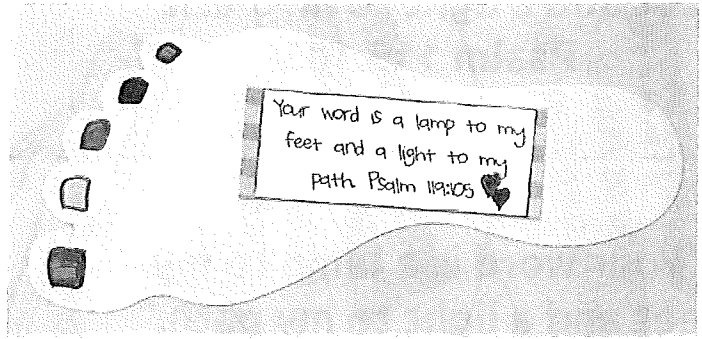 Your word is a lamp to my
feet and a light to my
path Psalm 119:105